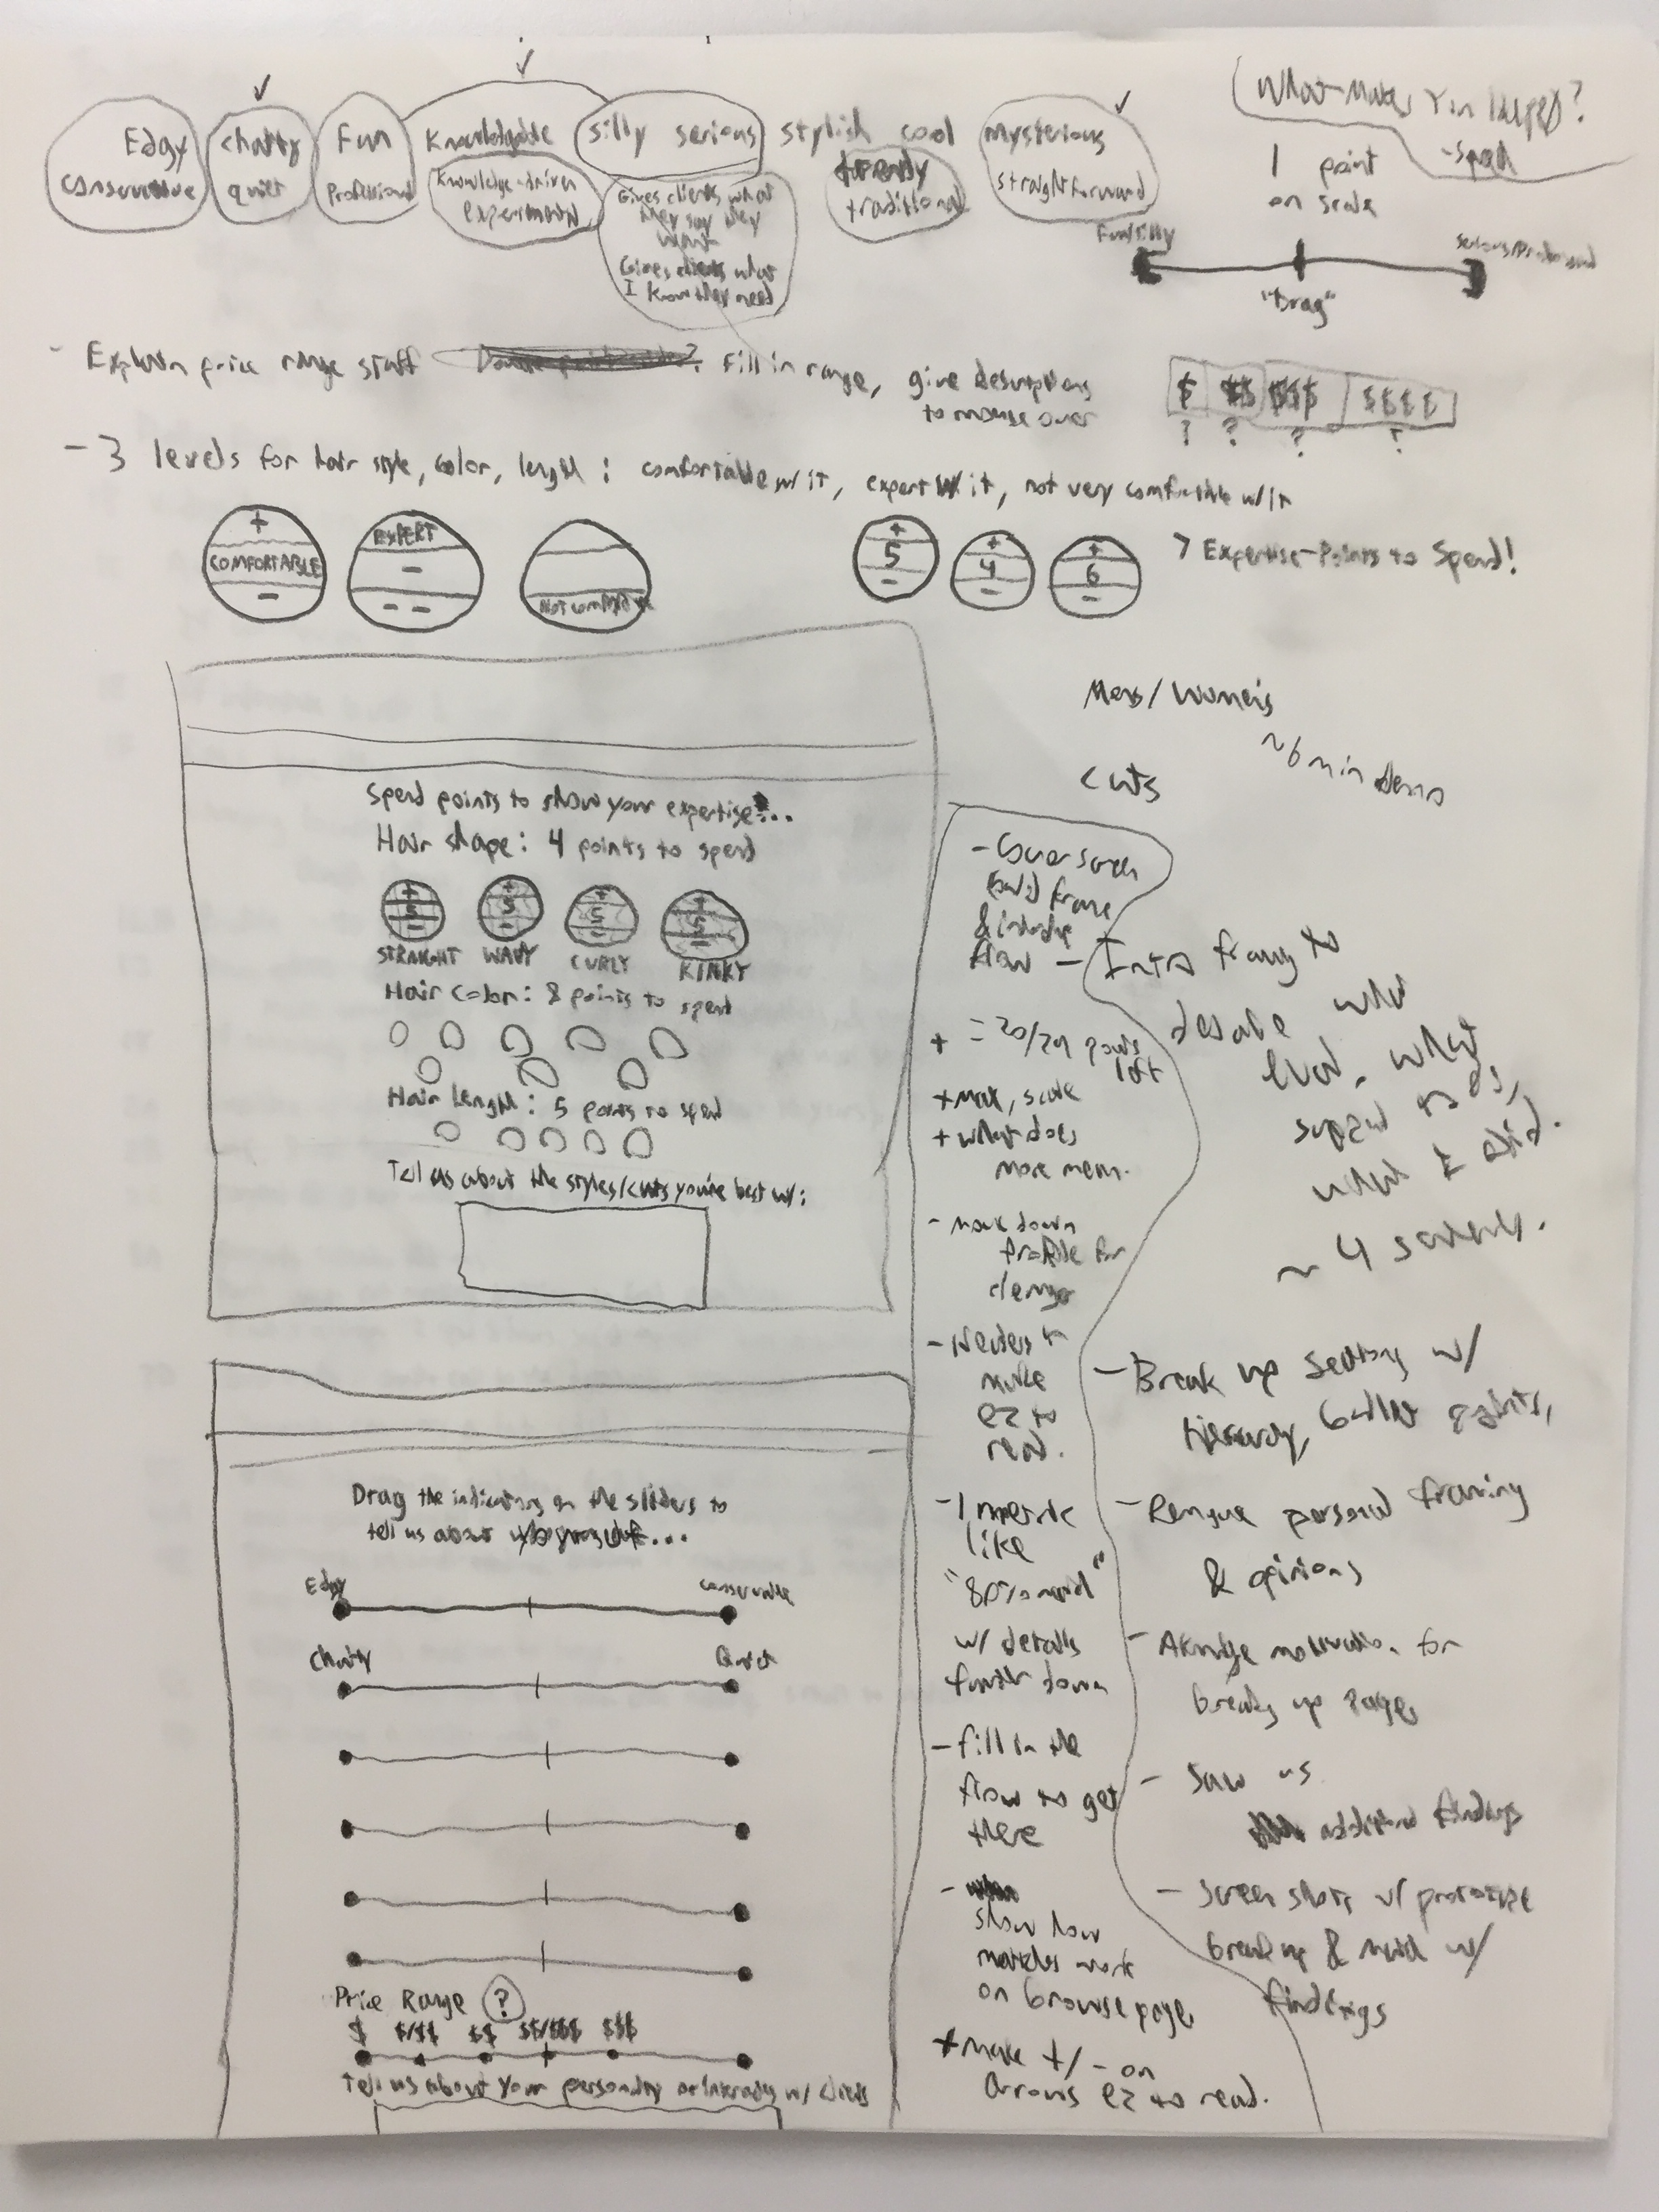 Edgy
conservative
chatty
quiet
Fun
Professional
Knowledgable
Knowledge-driven
experimental
silly serious
Gives clients what
they say they
want
Gives clients what
I know they need
stylish cool
trendy
traditional
mysterious
straightforward
What Makes
1 point
on scale
Fun/silly
"Drag"
- Explain price range stuff
Fill in range, give descriptions
to mouse over
$ $$ $$$ $$$$
? ? ? ?
- 3 levels for hair style, color, length: comfortable w/ it, expert w/ it, not very comfortable w/it
+
COMFORTABLE
-
EXPERT
-
- -
Not comfortable
+
5
-
+
4
-
+
6
-
> Expertise-Points to Spend!
Mens/Womens
cuts
~6 min demo
Spend points to show your expertise...
Hair shape: 4 points to spend
+
5
-
+
5
-
+
5
-
+
5
-
STRAIGHT WAVY CURLY KINKY
Hair Color: 8 points to spend
Hair Length: 5 points to spend
Tell us about the styles/cuts you're best w/:
Drag the indicators on the sliders to
tell us about
Edgy
conservative
Chatty
Quiet
Price Range ?
$ $/$$ $$ $$/$$$ $$$
Tell us about your personality or interests w/ clients
- Cover screen
frame
&
flow
+ = 20/29 points
left
+ max, scale
+ what does
more mean.
- mark down
Profile for
- Headers to
make
ez to
read.
- 1 metric
like
w/ details
further down
- fill in the
flow to get
there
-
show how
matches work
on browse page
+ make +/- on
arrows ez to read.
- Intro framing to
what
what
~ 4 screens.
- Break up sections w/
hierarchy, bullet points,
- Remove personal framing
& opinions
- for
breaking up page
- Saw us
additional findings
- screen shots w/ prototype
break up & match w/
findings